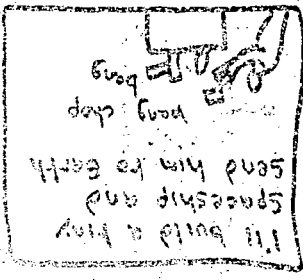 I'll build a tiny
spaceship and
send him to Earth
bong chop
bong